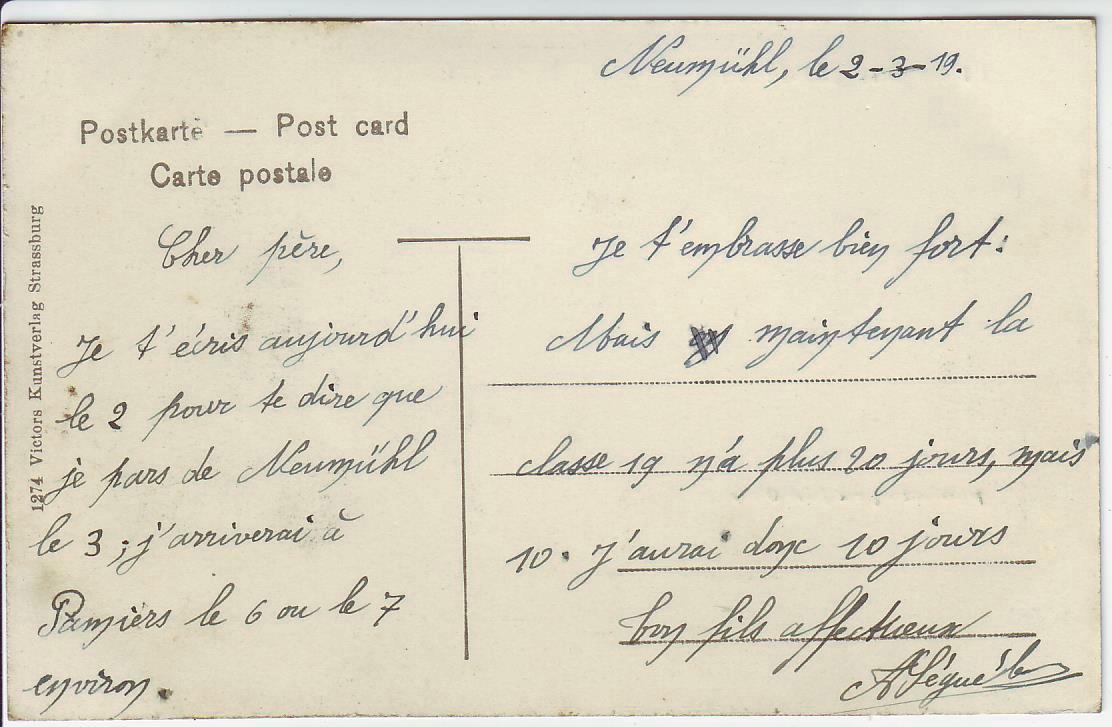 Neumühl, le 2-3-19.
Postkarte — Post card
Carte postale
1274 Victors Kunstverlag Strassburg
Cher père,
Je t'écris aujourd'hui
le 2 pour te dire que
je pars de Neumühl
le 3 ; j'arriverai à
Pamiers le 6 ou le 7
environ.
Je t'embrasse bien fort :
Mais maintenant la
classe 19 n'a plus 20 jours, mais
10. J'aurai donc 10 jours
ton fils affectueux